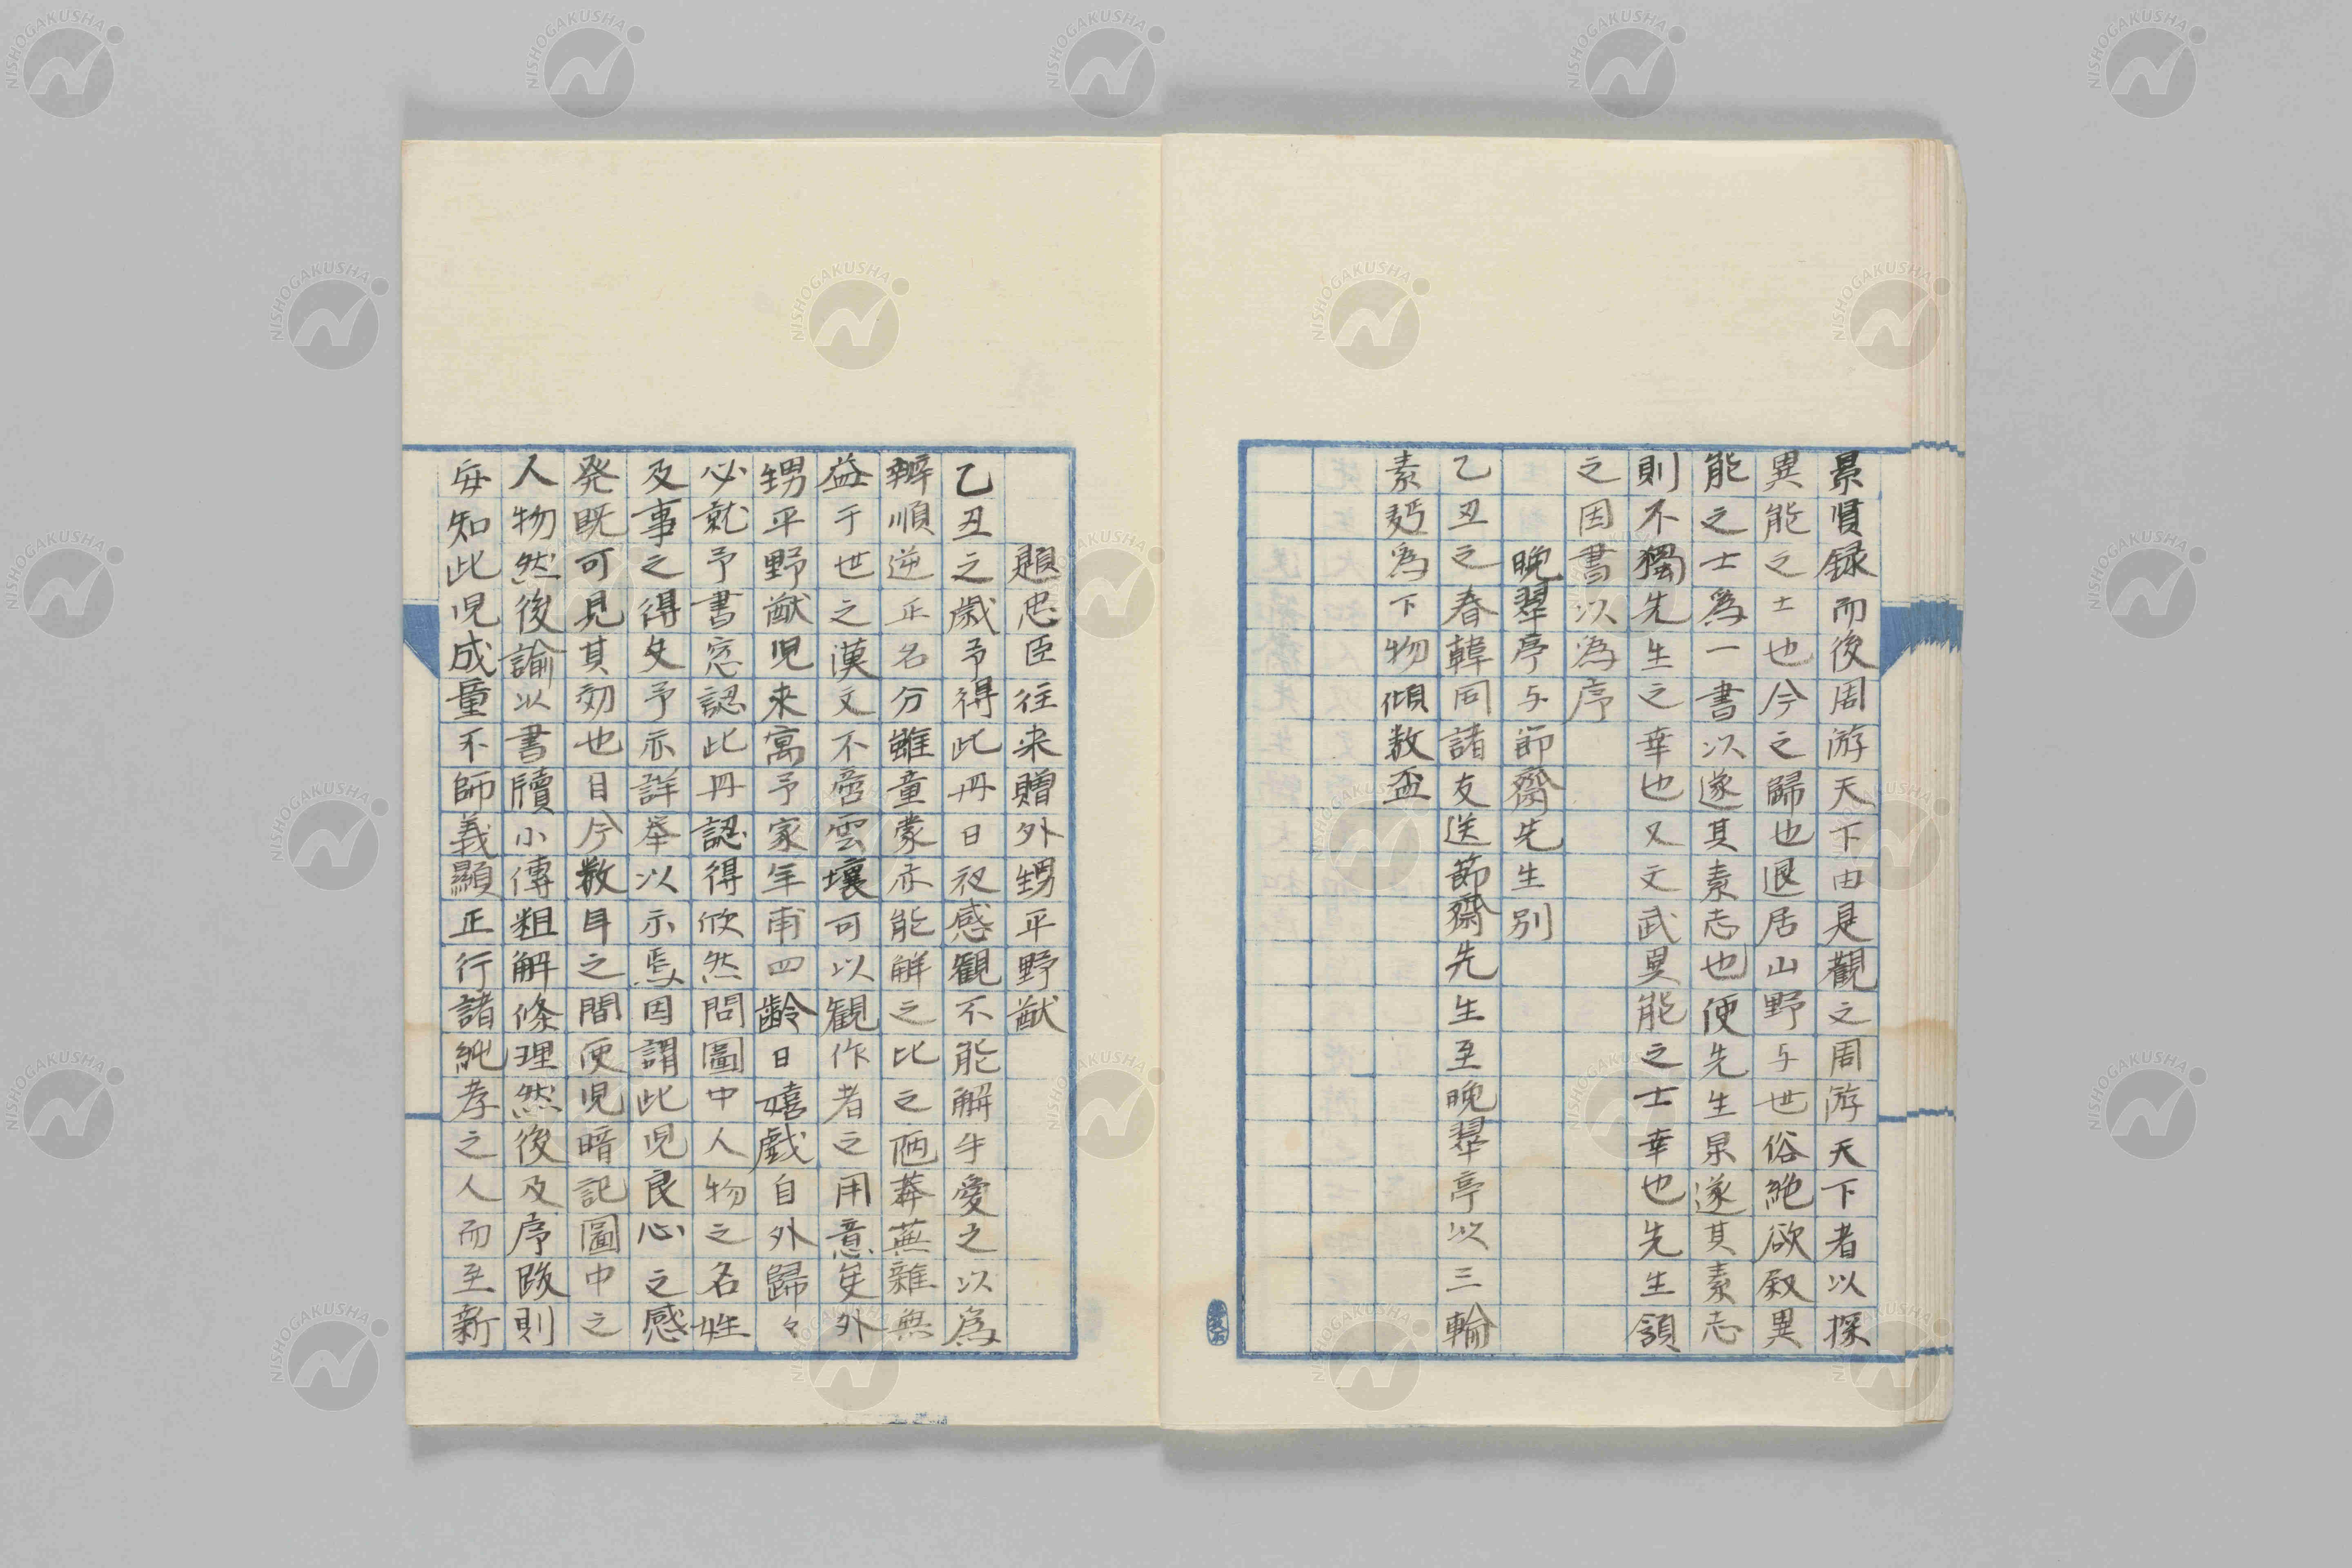 景賢録而後周游天下由是觀之周游天下者以探
異能之士也今之歸也退居山野与世俗絶欲叙異
能之士為一書以遂其素志也便先生果遂其素志
則不獨先生之幸也又文武異能之士幸也先生頷
之因書以為序
晩翠亭与節齋先生別
乙丑之春韓同諸友送節齋先生至晩翠亭以三輪
素麪為下物傾数盃
題忠臣往来贈外甥平野猷
乙丑之歳予得此冊日夜感観不能解手愛之以為
辨順逆正名分雖童蒙亦能解之比之陋莽蕪雜無
益于世之漢文不啻雲壌可以観作者之用意矣外
甥平野猷児来寓予家年甫四齢日嬉戯自外歸々
必就予書窓認此冊認得欣然問圖中人物之名姓
及事之得失予亦詳举以示焉因謂此児良心之感
発既可見其効也目今数月之間便児暗記圖中之
人物然後諭以書牘小傳粗解條理然後及序跋則
安知此児成童不師義顯正行諸純孝之人而至新
NISHOGAKUSHA